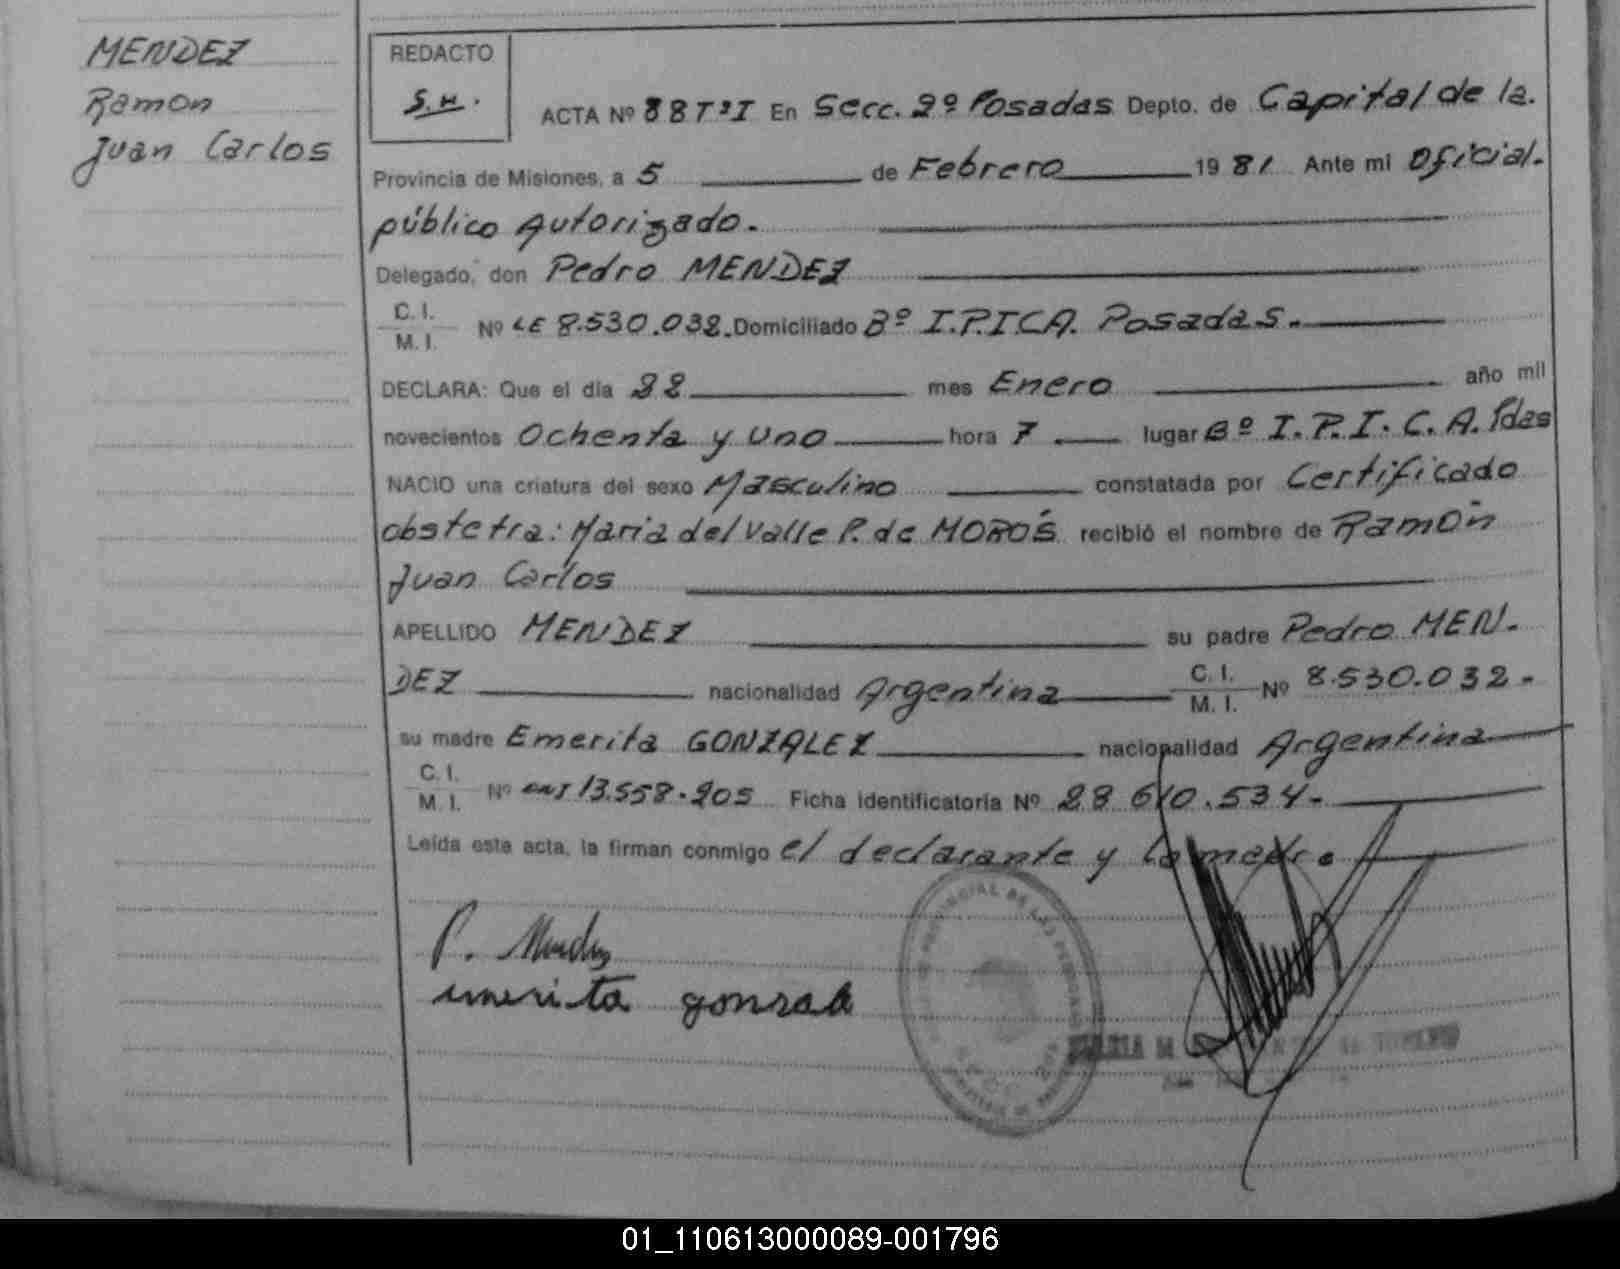 MENDEZ
Ramon
Juan Carlos
REDACTO
S.H.
ACTA Nº 88 TºI En Secc. 2º Posadas Depto. de Capital de la.
Provincia de Misiones, a 5 de Febrero 19 81 Ante mi Oficial.
público Autorizado.
Delegado, don Pedro MENDEZ
C. I.
M. I. Nº LE 8.530.032. Domiciliado Bº I.P.I.C.A. Posadas.
DECLARA: Que el día 22 mes Enero año mil
novecientos Ochenta y Uno hora 7 lugar Bº I.P.I.C.A. Pdas
NACIO una criatura del sexo Masculino constatada por Certificado
obstetra: Maria del Valle P. de MOROS recibió el nombre de Ramón
Juan Carlos
APELLIDO MENDEZ su padre Pedro MEN-
DEZ nacionalidad Argentina C. I. M. I. Nº 8.530.032.
su madre Emerita GONZALEZ nacionalidad Argentina
C. I.
M. I. Nº DNI 13.558.205 Ficha Identificatoria Nº 28.610.534.
Leída este acta, la firman conmigo el declarante y la madre
P. Mendez
emerita gonzale
01_110613000089-001796